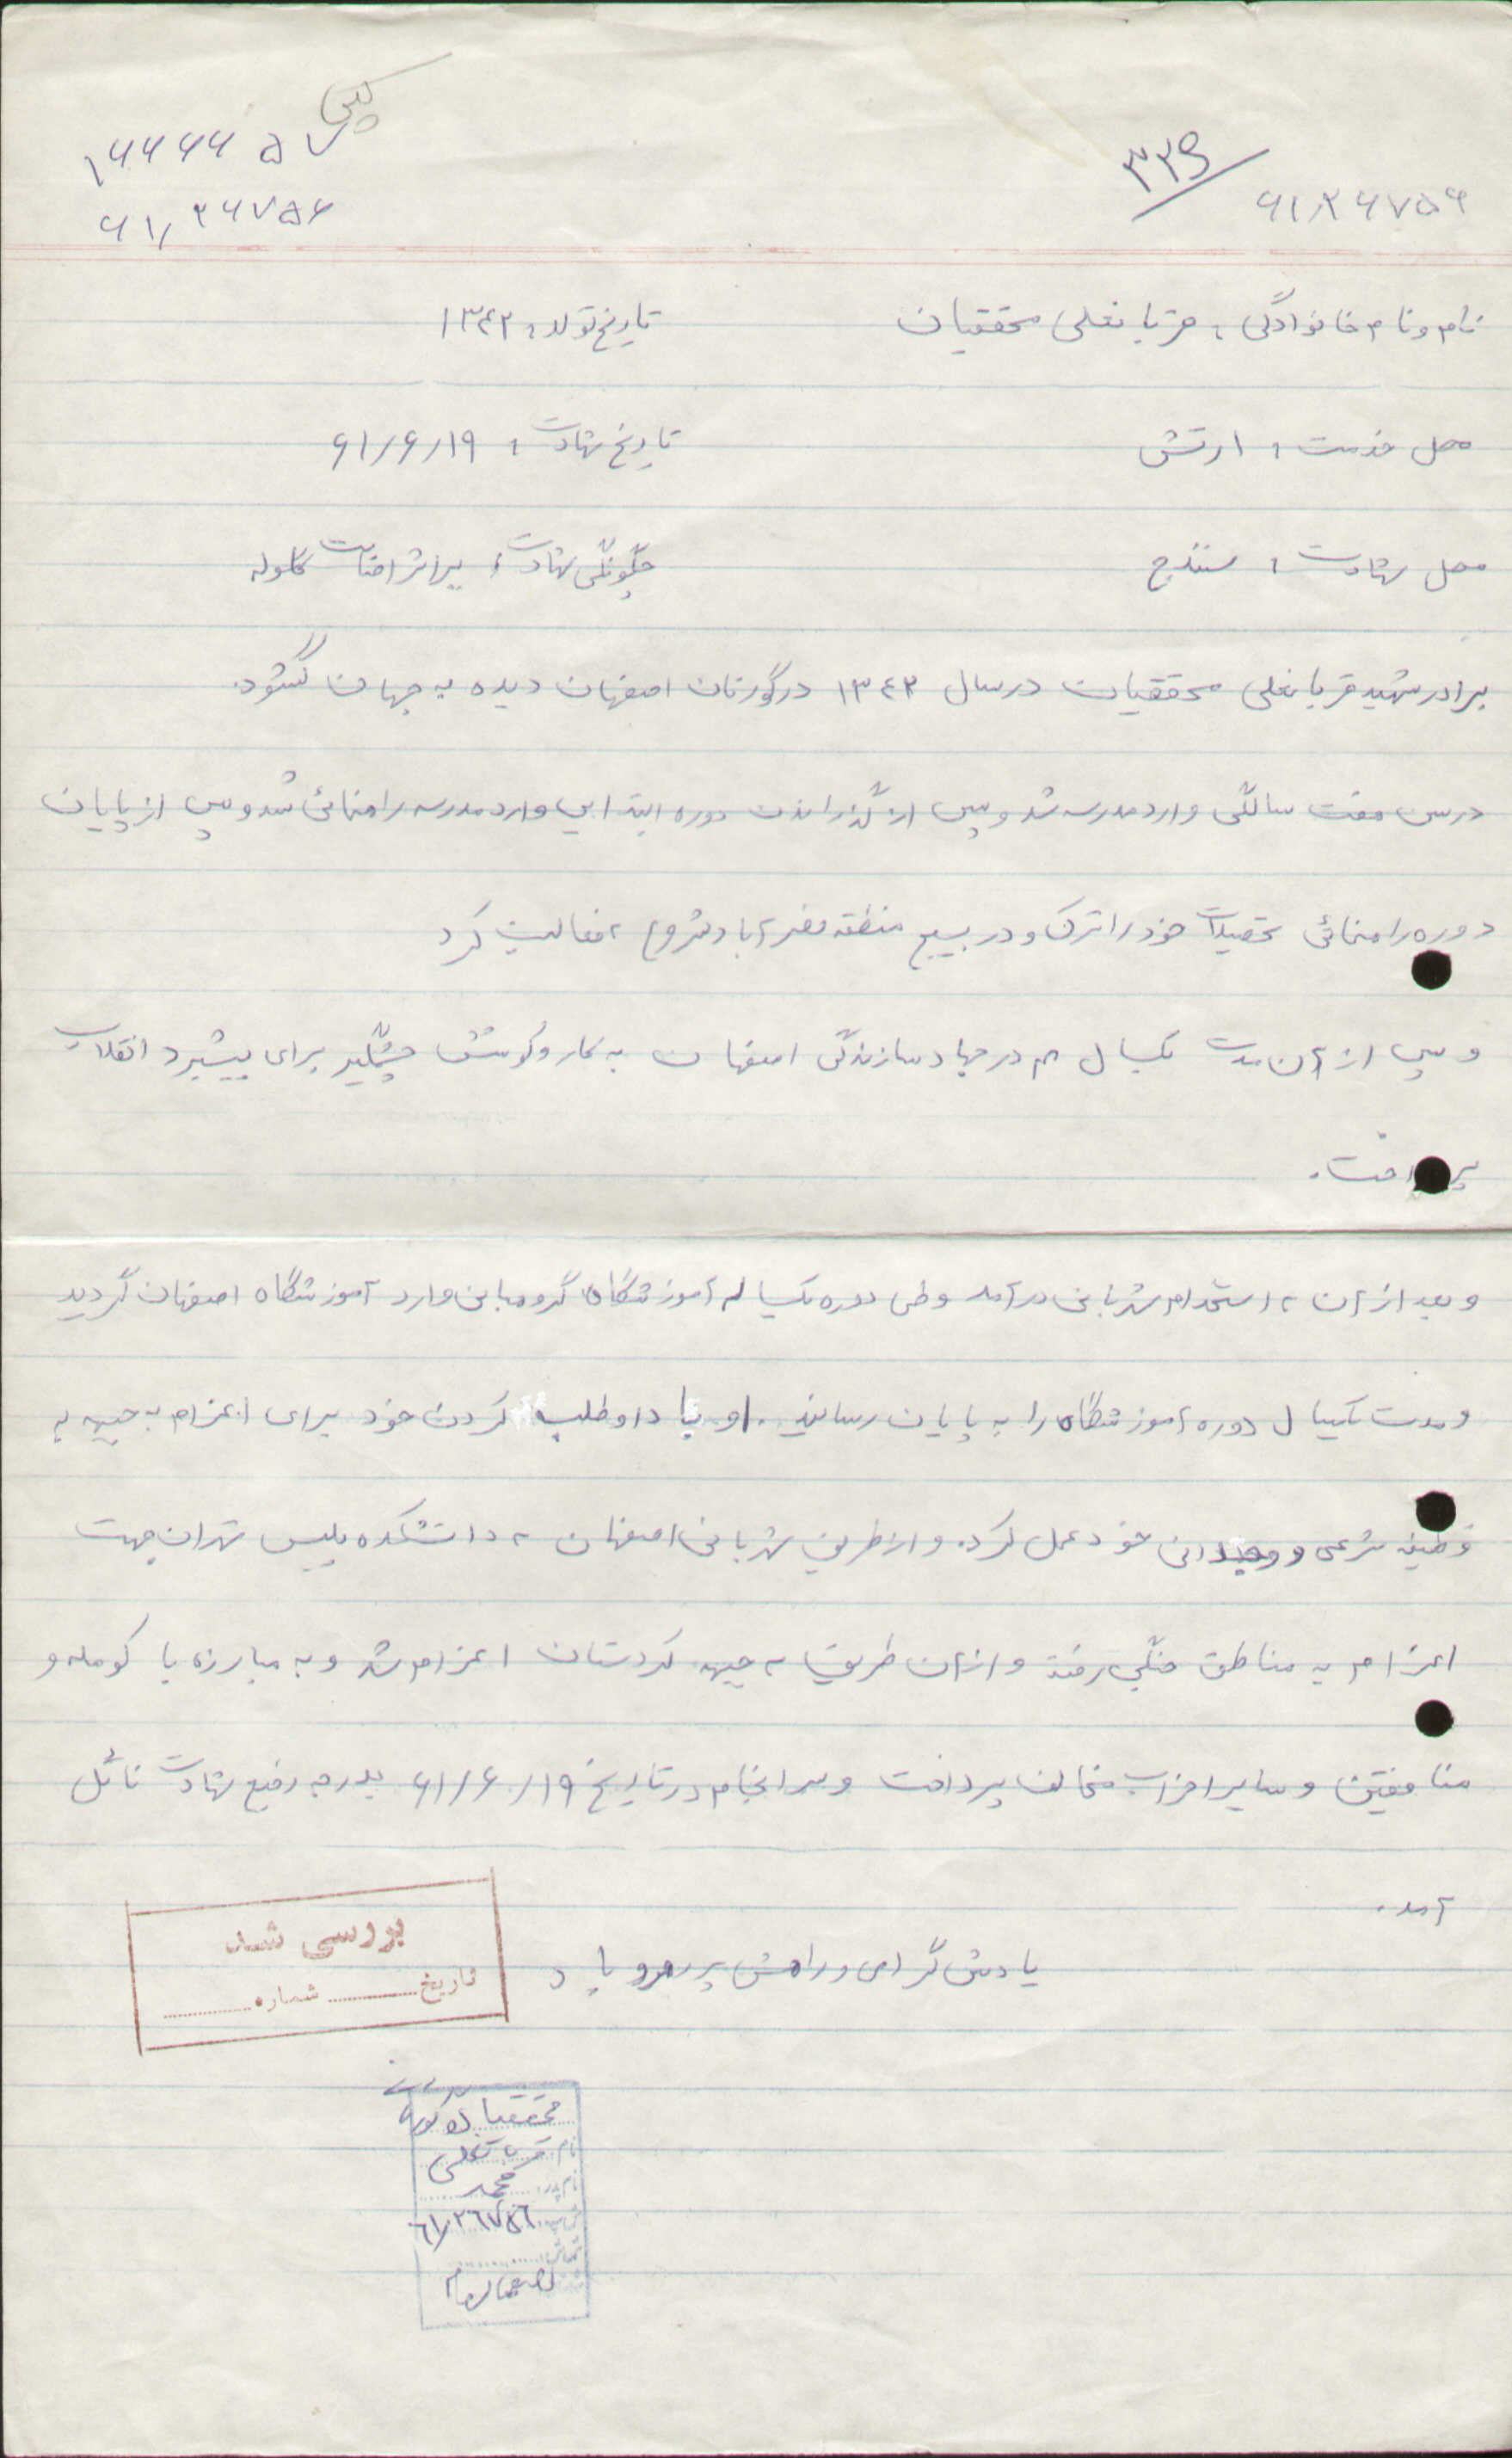 کپی
۱۶۶۶۶۵۷
۳۳۹
۶۱/۲۶۷۵۶
۶۱/۲۶۷۵۶
نام و نام خانوادگی : قربانعلی محققیان
تاریخ تولد : ۱۳۴۲
محل خدمت : ارتش
تاریخ شهادت : ۶۱/۶/۱۹
محل شهادت : سنندج
چگونگی شهادت : براثر اصابت گلوله
برادر شهید قربانعلی محققیان در سال ۱۳۴۲ در گورتان اصفهان دیده به جهان گشود.
در سن هفت سالگی وارد مدرسه شد و پس از گذراندن دوره ابتدایی وارد مدرسه راهنمائی شد و پس از پایان
دوره راهنمائی تحصیلات خود را ترک و در بسیج منطقه نصرآباد شروع به فعالیت کرد
و پس از آن مدت یکسال هم در جهاد سازندگی اصفهان به کار و کوشش چشمگیر برای پیشبرد انقلاب
پرداخت.
و بعد از آن به استخدام شهربانی درآمد و طی دوره یکساله آموزشگاه گروهبانی وارد آموزشگاه اصفهان گردید
و مدت یکسال دوره آموزشگاه را به پایان رسانید. او با داوطلب کردن خود برای اعزام به جبهه به
وظیفه شرعی و وجدانی خود عمل کرد. و از طریق شهربانی اصفهان به دانشکده پلیس تهران جهت
اعزام به مناطق جنگی رفتند و از آن طریق به جبهه کردستان اعزام شد و به مبارزه با کومله و
منافقین و سایر احزاب مخالف پرداخت و سرانجام در تاریخ ۶۱/۶/۱۹ بدرجه رفیع شهادت نائل
آمد.
یادش گرامی و راهش پر رهرو باد
بررسی شد
تاریخ ............ شماره ............
محققیان
نام: قربانعلی
نام پدر: محمد
۶۱/۲۶۷۵۶